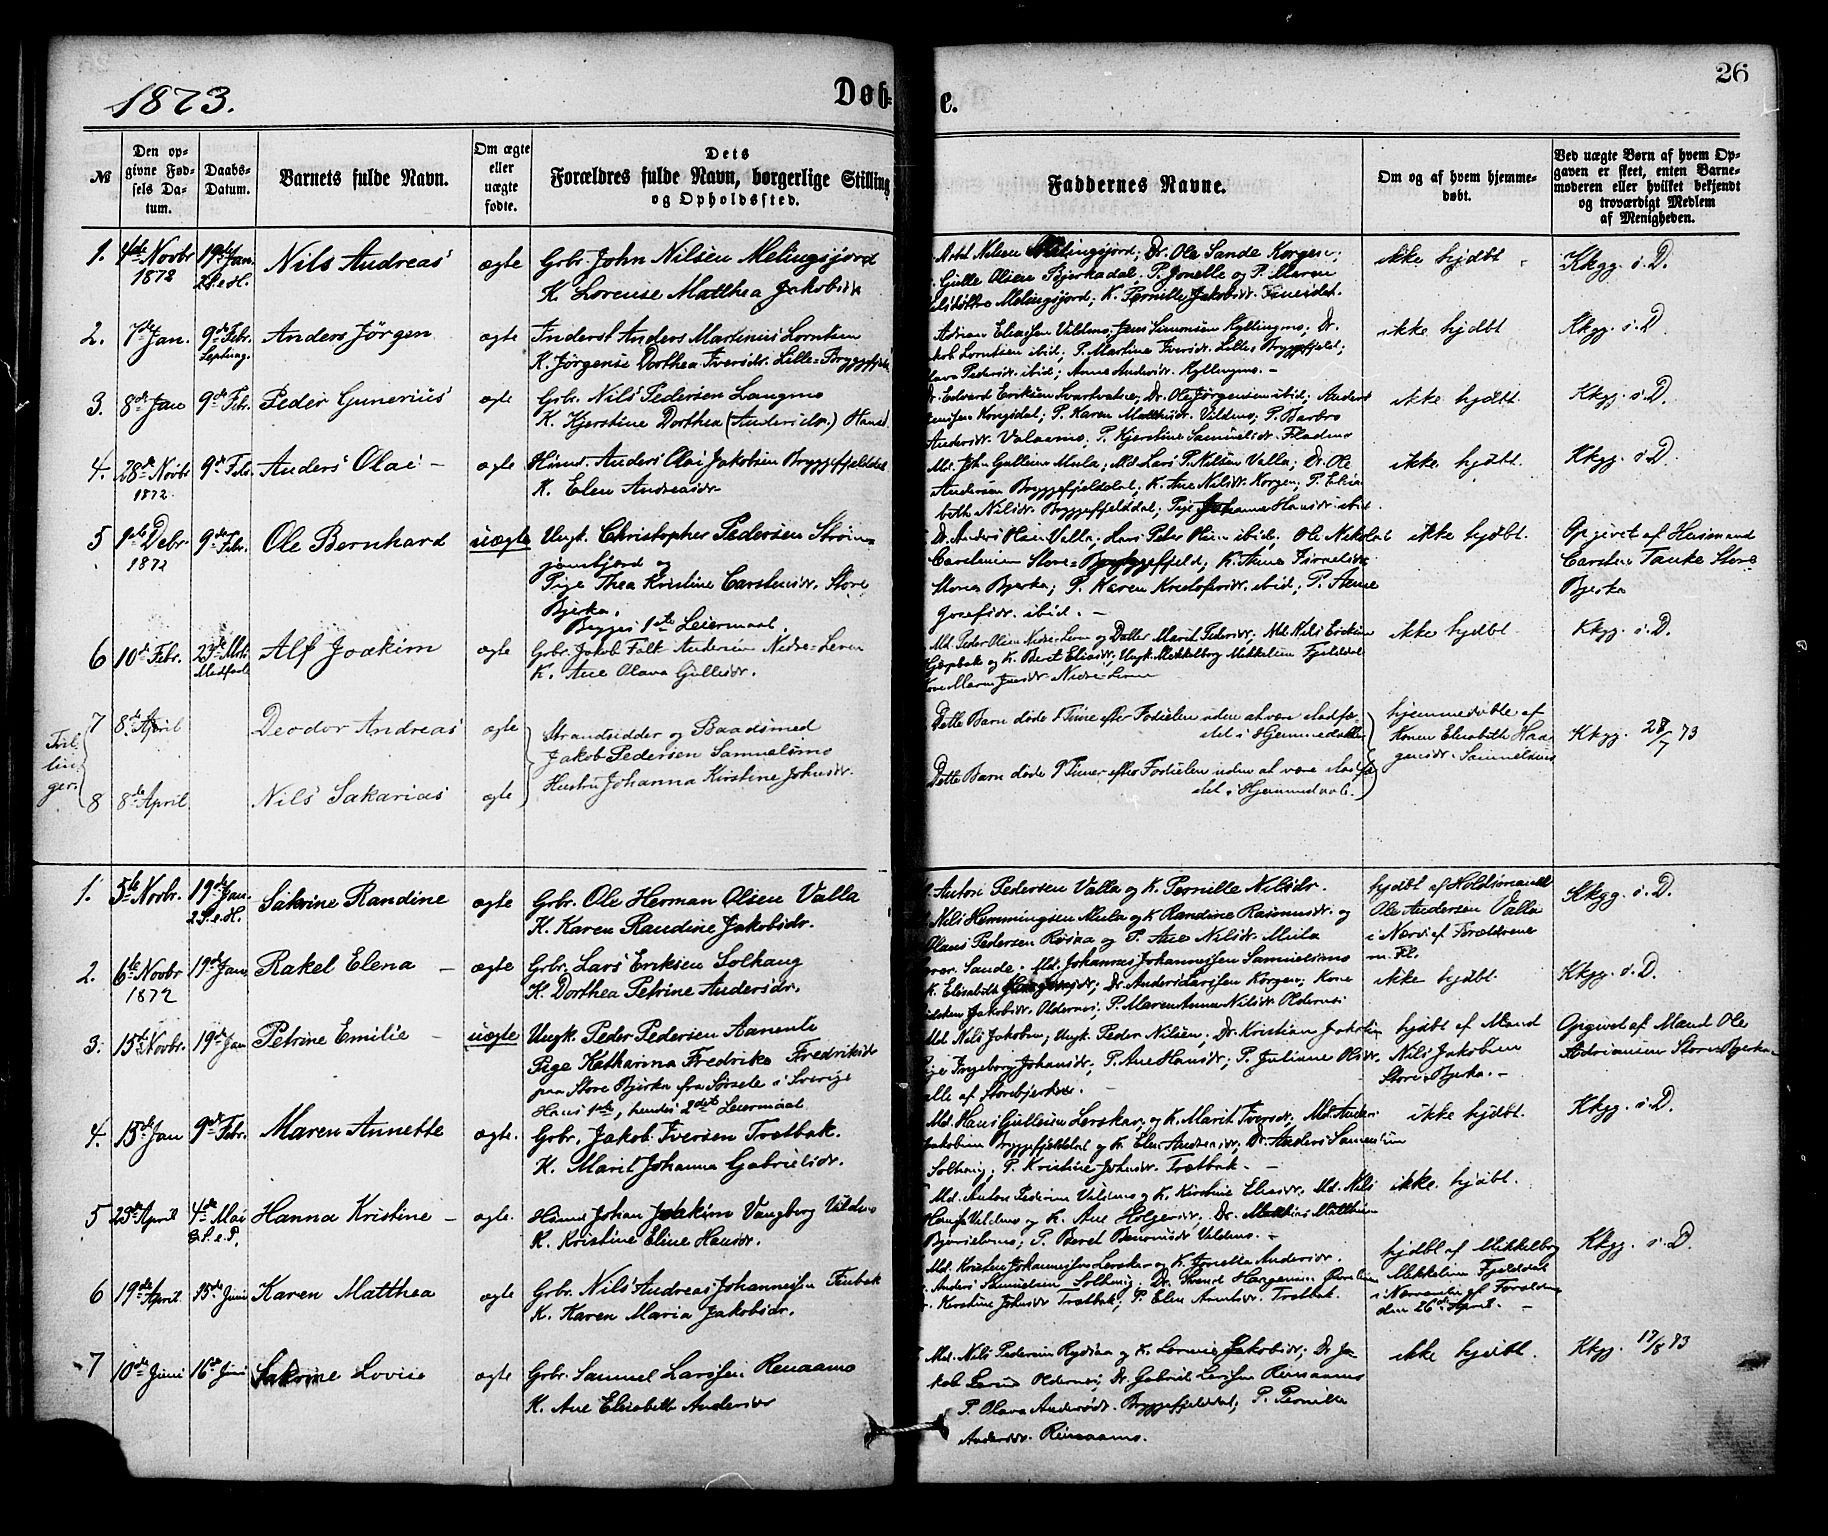 1873.
Døb-
e.
26
№
Den op-
givne Fød-
sels Da-
tum.
Daabs-
Datum.
Barnets fulde Navn.
Om ægte
eller
uægte
fødte.
Dets
Forældres fulde Navn, borgerlige Stilling
og Opholdssted.
Faddernes Navne.
Om og af hvem hjemme-
døbt.
Ved uægte Børn af hvem Op-
gaven er skeet, enten Barne-
moderen eller hvilket bekjendt
og troværdigt Medlem
af Menigheden.
1. 4de Novbr 19de Jan. Nils Andreas ægte Gbr. John Nilsen Melingsjord
1872 2 S. e. H. K. Lorense Matthea Jakobsdr
Nilsen Melingsjord; Dr. Ole Sande Korgen;
Gulle Olsen Bjerkadal. P. Jonette og P. Maren
Melingsjord; K. Pernille Jakobsdr. Finesdet.
ikke hjdbt - Kkgg. s. D.
2. 7de Jan. 9de Febr. Anders Jørgen ægte Inderst Anders Martinus Lorntsen
K. Jørgense Dorthea Iversdr. Lille-Bryggfjeld
Adrian Eliassen Vildmo; Jens Simonsen Kyllingmo; Dr.
Lorntsen ibid; P. Martine Iversdr. Lille Bryggefjeld;
Pedersdr. ibid; Anne Andersdr. Kyllingmo. -
ikke hjdbt Kkgg. s. D
3. 8de Jan 9de Febr. Peder Gunerius ægte Gbr. Nils Pedersen Langmo
K. Kjerstine Dorthea (Andersdr.)
Dr. Edvard Eriksen Svartvatne; Dr. Ole Jørgensen ibid; Anders
Kongsdal; P. Karen Matthisdr. Vildmo; P. Barbro
Andersdr. Valaamo; P. Kjerstine Samuelsdr. Fladmo
ikke hjdbt. Kkgg. s. D.
4. 28de Novbr 9de Febr Anders Olai - ægte Husmd. Anders Olai Jakobsen Bryggefjelddal
1872. K. Elen Andreasdr
Md. John Gullesen Mula; Md. Lars P. Nilsen Valla; Dr. Ole
Andersen Bryggefjelddal; K. Ane Nilsdr. Korgen; P. Elisa-
beth Nilsdr. Bryggefjelddal; Pige Johanna Hansdr. ibid
ikke hjdbt. Kkgg. s. D.
5 9de Febr. Ole Bernhard uægte Ungk. Christopher Pedersen Strøm-
1872 og
Pige Thea Kristine Carstensdr. Store
Bjerka.
Begges 1ste Leiermaal.
Valla; Hans Peter ibid; Ole Nikolai
Carstensen Store Bjerka; P. Karen Kristofersdr. ibid; P. Anne
Josefsdr. ibid. -
ikke hjdbt. Opgivet af Husmand
Carsten Tanke Store
Bjerka
6 10de Febr. Alf Joakim ægte Gbr. Jakob Falk Andersen Nedre-Leren
K. Ane Olava Gullesdr.
Md. Peder Olsen Nedre-Leren og Datter Marit Pedersdr; Md. Nils Eriksen
og K. Berit Eliasdr; Ungk. Mikkelborg Mikkelsen Fjelddal
ikke hjdbt Kkgg. s. D.
Tvil-
lin-
ger.
7 8de April Deodor Andreas ægte Strandsidder og Baadsmed
Jakob Pedersen Samuelsmo
Hustru Johanna Kirstine Johnsdr.
Dette Barn døde 1 Time efter Fødselen uden at være stadfæ-
stet i Hjemmedaaben
hjemmedøbte af
Konen Elisabeth Haa-
gensdr. Samuelsmo
Kkgg. 28/7 73
8 8de April Nils Sakarias ægte
Dette Barn døde 9 Timer efter Fødselen uden at være stadfæ-
stet i Hjemmedaab.
1. 5te Novbr. 19de Jan. Sakrine Randine ægte Gbr. Ole Herman Olsen Valla
2 S. e. H. K. Karen Randine Jakobsdr.
Anton Pedersen Valla og K. Pernille Nilsdr.
Nils Hemmingsen Mula og K Randine Rasmusdr. og
Olaus Pedersen Røsaa og P. Ane Nilsdr. Mula
hjdbt af Holdsmand
Ole Andersen Valla
i Nærv. af Forældrene
m. Fl.
Kkgg. s. D.
2. 6te Novbr 19de Jan. Rakel Elena - ægte Gbr. Lars Eriksen Solhaug
1872 K. Dorthea Petrine Andersdr.
Sande; Md. Johannes Johannessen Samuelsmo
K. Elisabeth Haagensdr; Dr. Anders Larssen Korgen; Kone
Jakobsdr. Oldernes; P. Maren Anna Nilsdr Oldernes
ikke hjdbt. Kkgg. s. D.
3. 15de Novbr. 19de Jan Petrine Emilie - uægte Ungk. Peder Pedersen Aanente
Pige Katharina Fredrike Fredriksdr
paa Store Bjerka fra Sorsele i Sverige
Hans 1ste, hendes 2det Leiermaal
Md. Nils Jakobsen; Ungk. Peder Nilsen; Dr. Kristian Jakobsen
Pige Ingeborg Johansdr; P. Ane Hansdr; P. Juliane Olsdr.
alle af Storebjerka. -
hjdbt af Mand
Nils Jakobsen
Store Bjerka. -
Opgivet af Mand Ole
Adriansen Store Bjerka
4. 15de Jan 9de Febr. Maren Annette ægte. Gbr. Jakob Iversen Trætbak.
K. Marit Johanna Gabrielsdr.
Md. Hans Gullesen Lerskar, og K. Marit Iversdr; Md. Anders
Jakobsen Bryggefjelddal og K. Elen Andreasdr; Dr. Anders Samuelsen
Solhaug; P. Kristine Johnsdr. Trætbak. -
ikke hjdbt. Kkgg. s. D.
5 23de April 4de Mai Hanna Kristine - ægte. Husmd Johan Joakim Vangberg Vildmo
3 S. e. P. K. Kristine Eline Hansdr.
Md. Anton Pedersen Vildmo og K. Kirstine Eliasdr. Md. Nils
Vildmo og K. Ane Holgersdr; Dr. Matthias Matthisen
P. Beret Vildmo. -
ikke hjdbt. Kkgg. s. D.
6 19de April 15de Juni Karen Matthea ægte Gbr. Nils Andreas Johannessen Finbak
K. Karen Maria Jakobsdr.
Md. Kristen Johannessen Lerskar og K. Pernille Andersdr.
Anders Samuelsen Solhaug; Dr.
Kirstine Johnsdr Trætbak; P. Elen Trætbak.
hjdbt af Mikkelborg
Mikkelsen Fjelddal
i Nærværelse af Forældrene
den 26de April. -
7 10de Juni 16de Juni Sakrine Lovise ægte Gbr. Samuel Larssen Renaamo
K. Ane Elisabeth Andersdr
Md. Nils Pedersen Rydsaa og K. Lorense Jakobsdr; Dr. Ja-
kob Oldernes; Dr. Gabriel Larssen Renaamo
P. Olava Andersdr. Bryggefjelddal; P. Pernille
Andersdr. Renaamo.
ikke hjdbt. Kkgg. 17/8 73